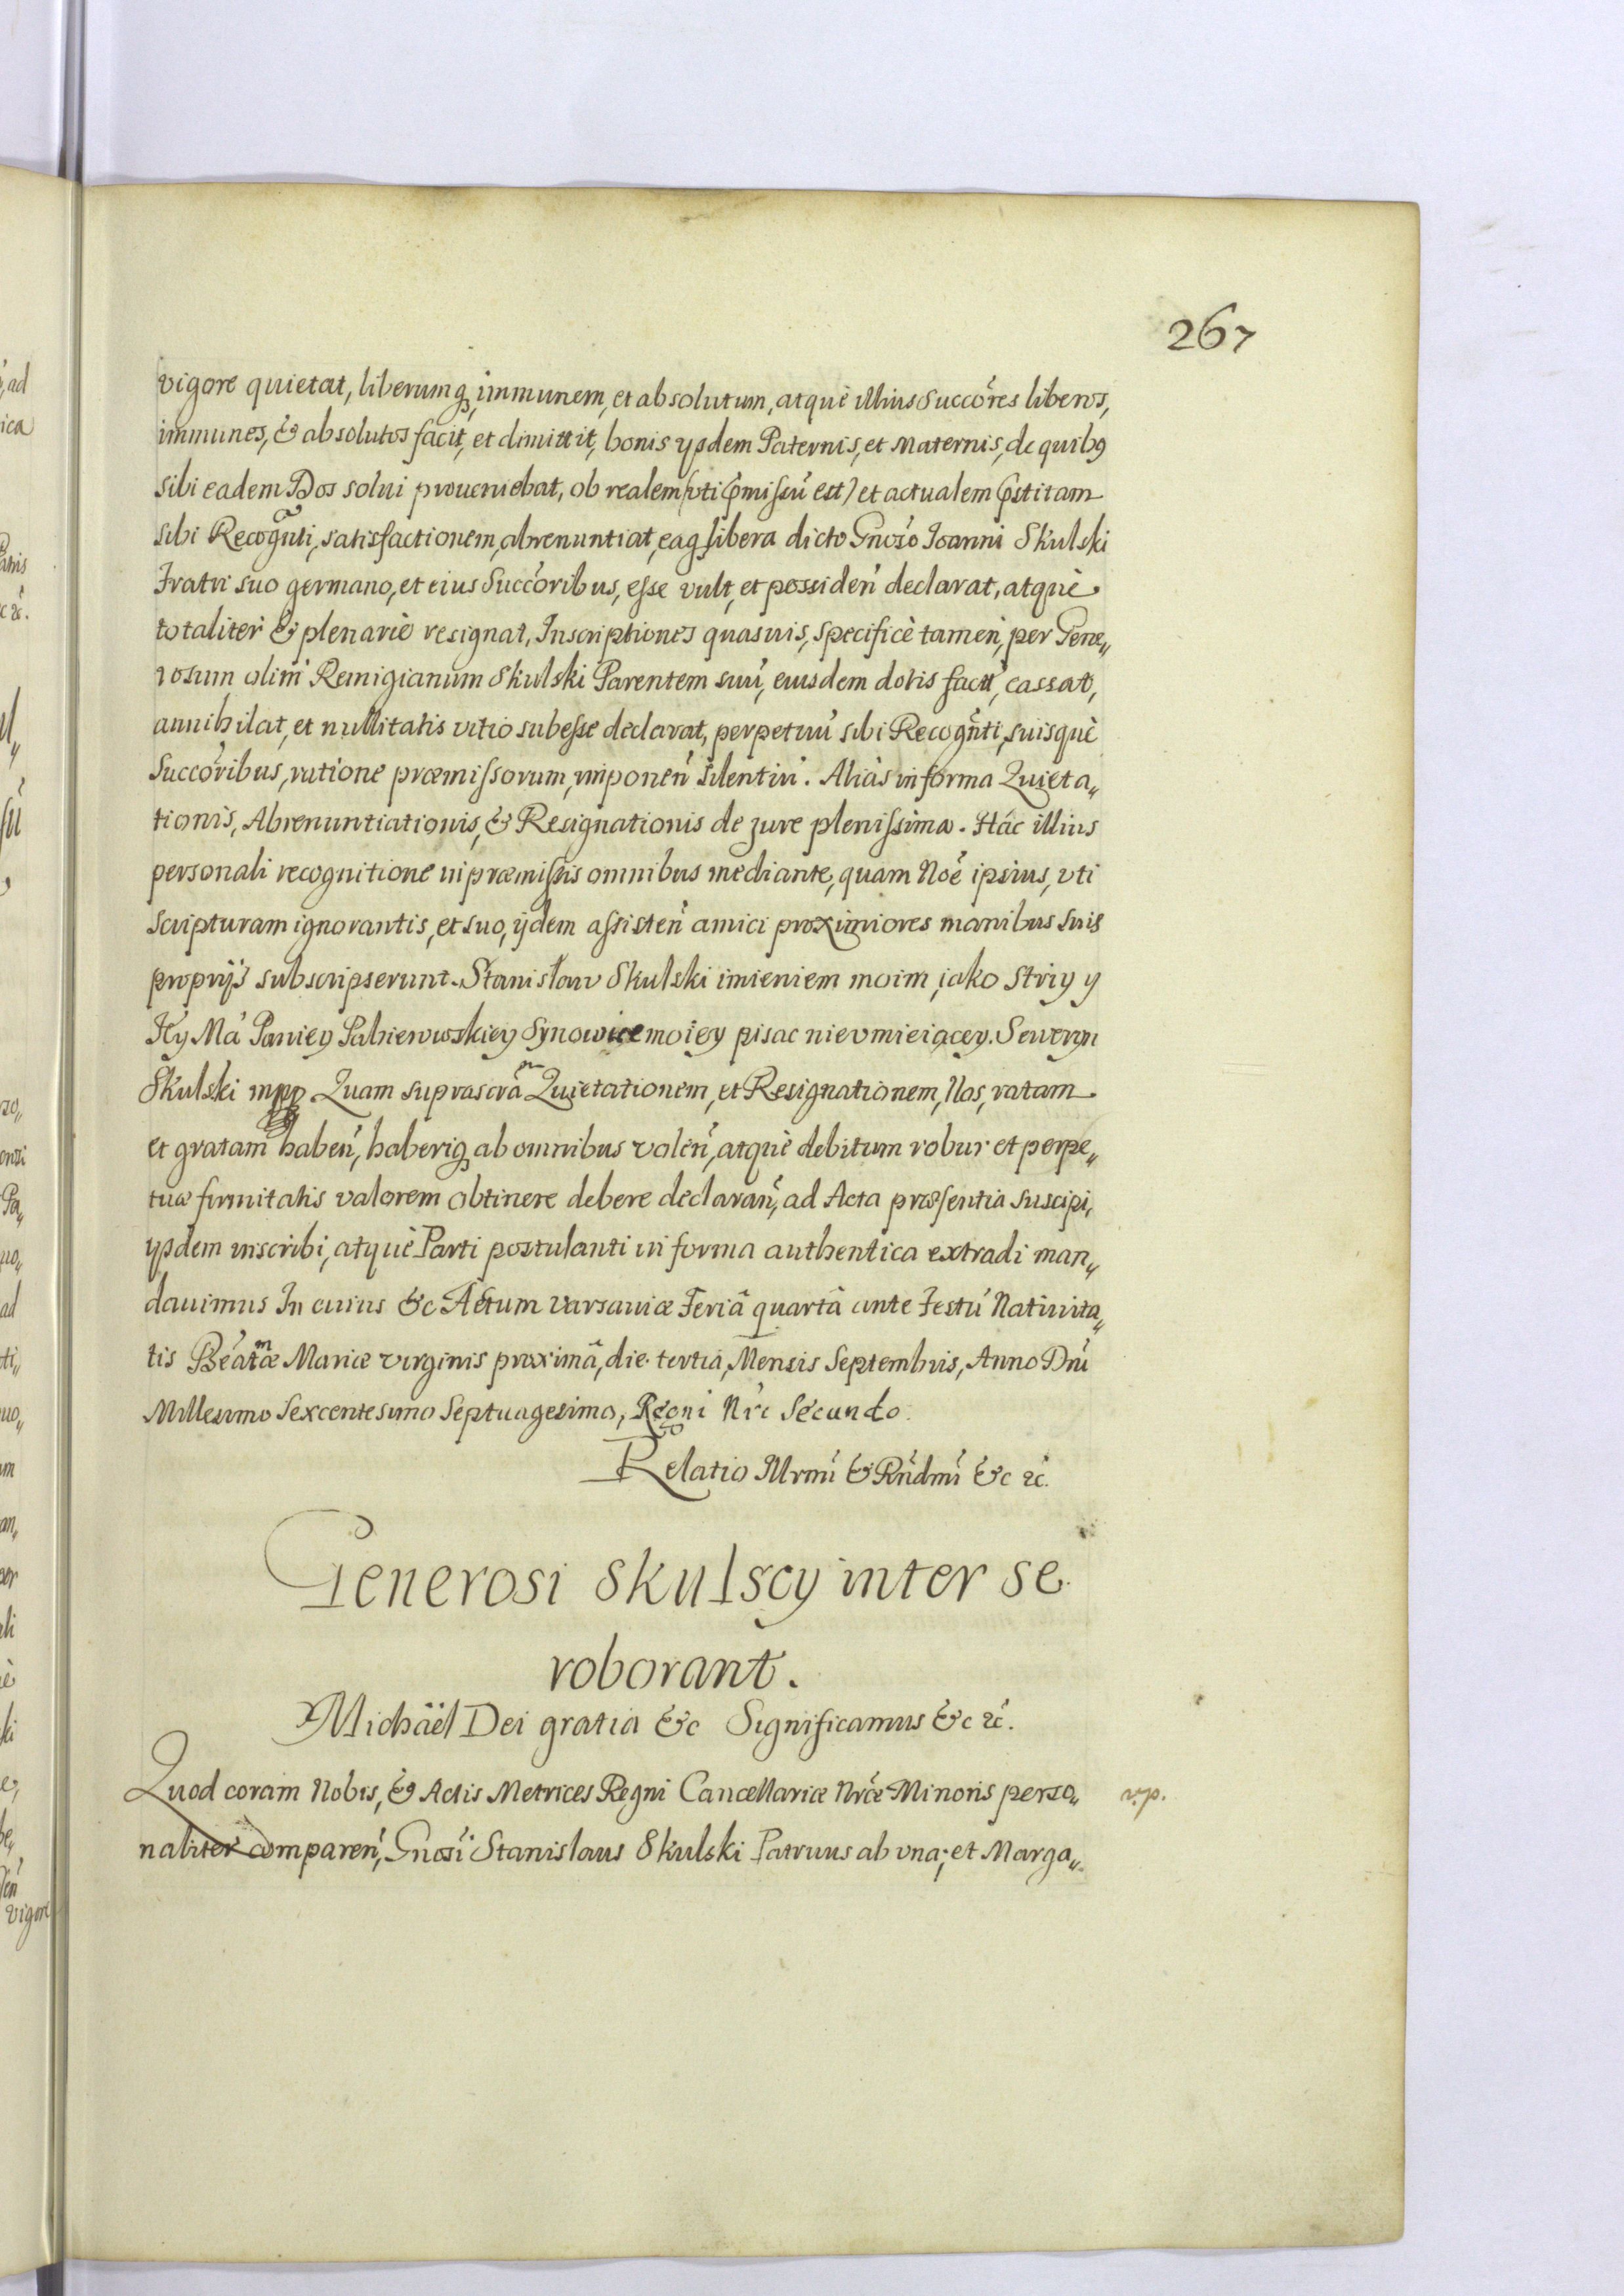 267
vigore quietat, liberumq, immunem, et absolutum, atquè illius Succo͠res liberos,
immunes, & absolutos facit, et dimittit, bonis ysdem Paternis, et Maternis, de quibꝰ
sibi eadem Dos solui proueniebat, ob realem (vti p͠missu͠ est) et actualem p͠stitam
sibi Recogn͠ti, satisfactionem, abrenuntiat, eaq libera dicto Gnoso͠ Joanni Skulski
Fratri suo germano, et eius Succo͠ribus, esse vult, et possiden͠ declarat, atquè
totaliter & plenariè resignat, Inscriptiones quasuis, specificè tamen, per Gene„
rosum olim Remigianum Skulski Parentem suu͠, eiusdem dotis fact͠, cassat,
annihilat, et nullitatis vitio subesse declarat, perpetuu͠ sibi Recogn͠ti, suisquè
Succo͠ribus, ratione præmissorum, imponen͠ silentiu͠. Aliàs in forma Quieta„
tionis, Abrenuntiationis, & Resignationis de jure plenissima. Hâc illius
personali recognitione in præmissis omnibus mediante, quam No͠e ipsius, vti
scripturam ignorantis, et suo, ijdem assisten͠ amici proximiores manibus suis
proprijs subscripserunt. Stanisław Skulski imieniem moim, jako Striy y
Jey Ma͠ Paniey Pabierowskiey Synowice moiey pisac nievmieiącey. Seweryn
Skulski mpp Quam suprascra͠m Quietationem, et Resignationem, Nos, ratam
et gratam haben͠, haberiq ab omnibus volen͠, atquè debitum robur et perpe„
tuæ firmitatis valorem obtinere debere declaran͠, ad Acta præsentia suscipi,
ysdem inscribi, atquè Parti postulanti in forma authentica extradi man„
dauimus In cuius &c Actum Varsaviæ Feriâ quartâ ante Festu͠ Natiuita„
tis Beat͠mæ Mariæ virginis proximâ, die tertia, Mensis Septembris, Anno Dn͠i
Millesimo Sexcentesimo Septuagesimo, Regni Nr͠i Secundo.
Relatio Illrmi͠ & Rn͠dmi͠ &c &c͠.
Generosi Skulscy inter se
roborant.
Michäel Dei gratia &c Significamus &c &c͠.
Quod coram Nobis, & Actis Metrices Regni Cancellariæ Nr͠æ Minoris perso„
v.p.
naliter comparen͠, Gnosi͠ Stanislaus Skulski Patruus ab vna; et Marga„